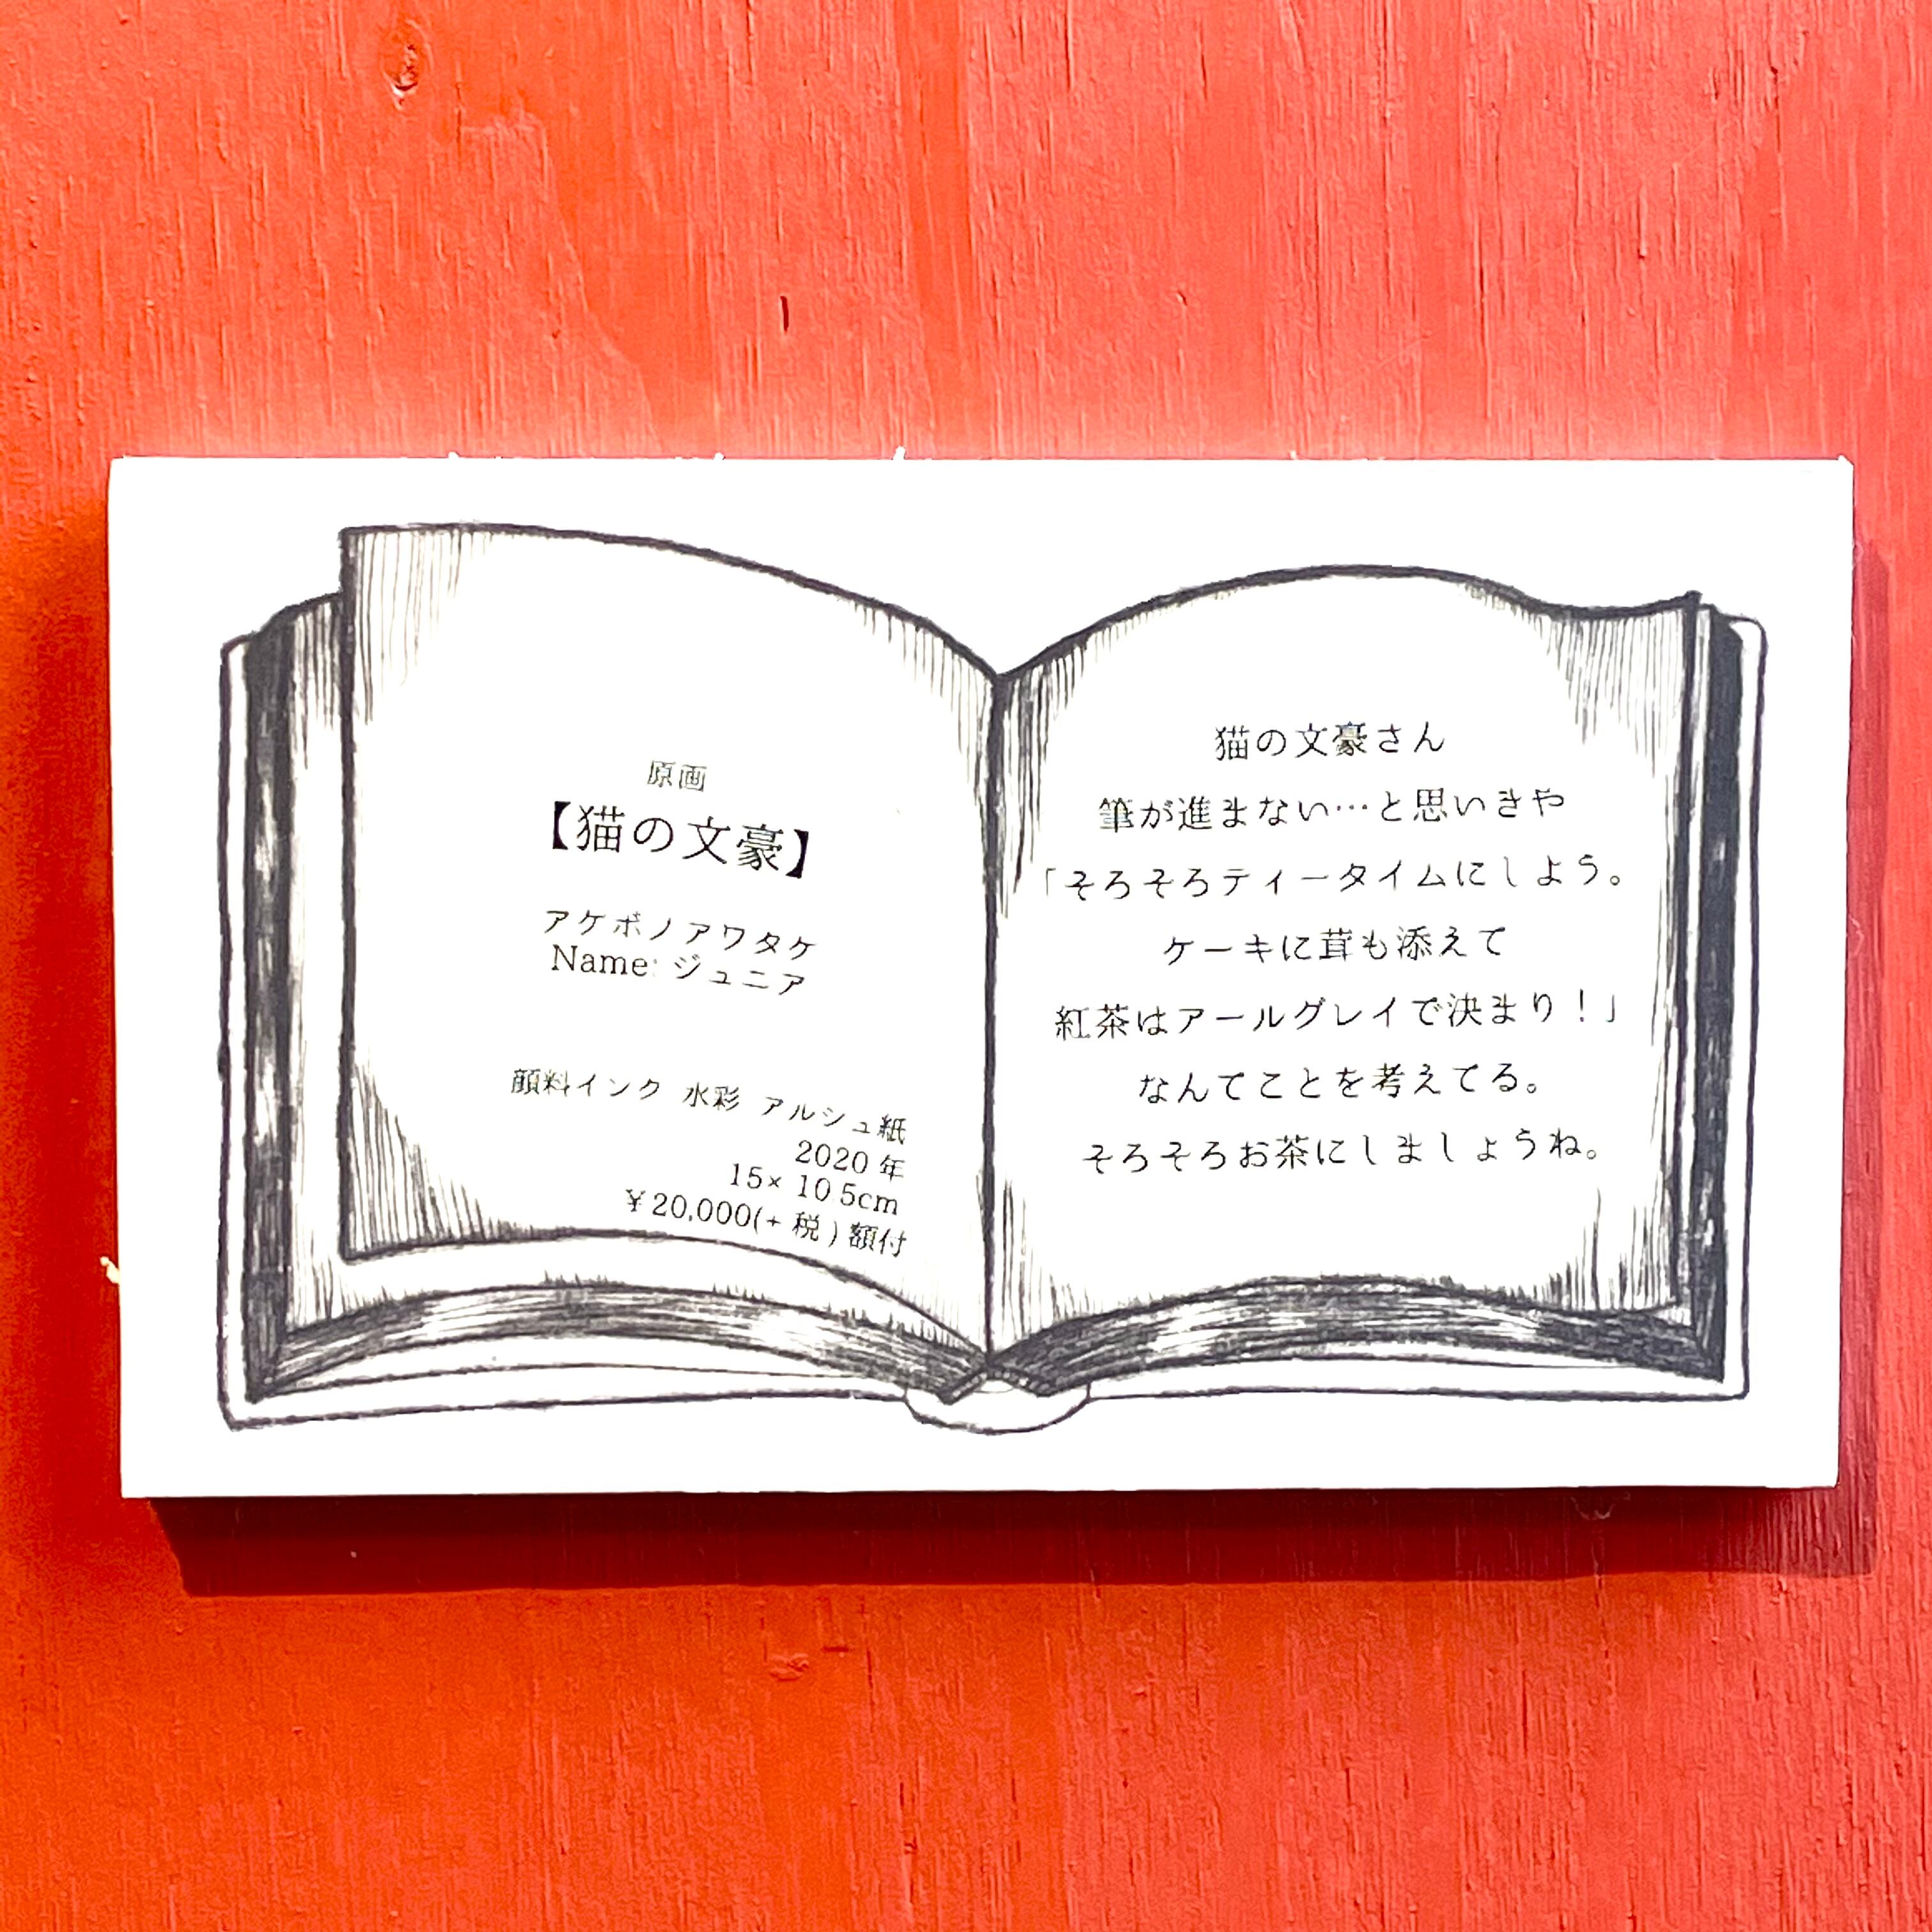 原画
【猫の文豪】
アケボノアワタケ
Name: ジュニア
顔料インク 水彩 アルシュ紙
2020年
15×10.5cm
¥20,000(+税)額付
猫の文豪さん
筆が進まない…と思いきや
「そろそろティータイムにしよう。
ケーキに茸も添えて
紅茶はアールグレイで決まり!」
なんてことを考えてる。
そろそろお茶にしましょうね。